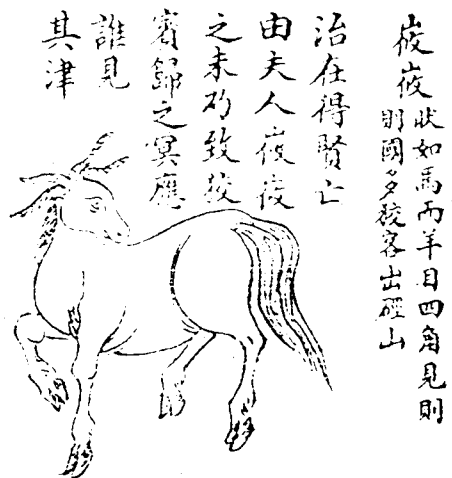 峳峳
狀如馬而羊目四角見則
則國多狡客出硜山
治在得賢亡
由夫人峳峳
之来乃致狡
賓歸之冥應
誰見
其津